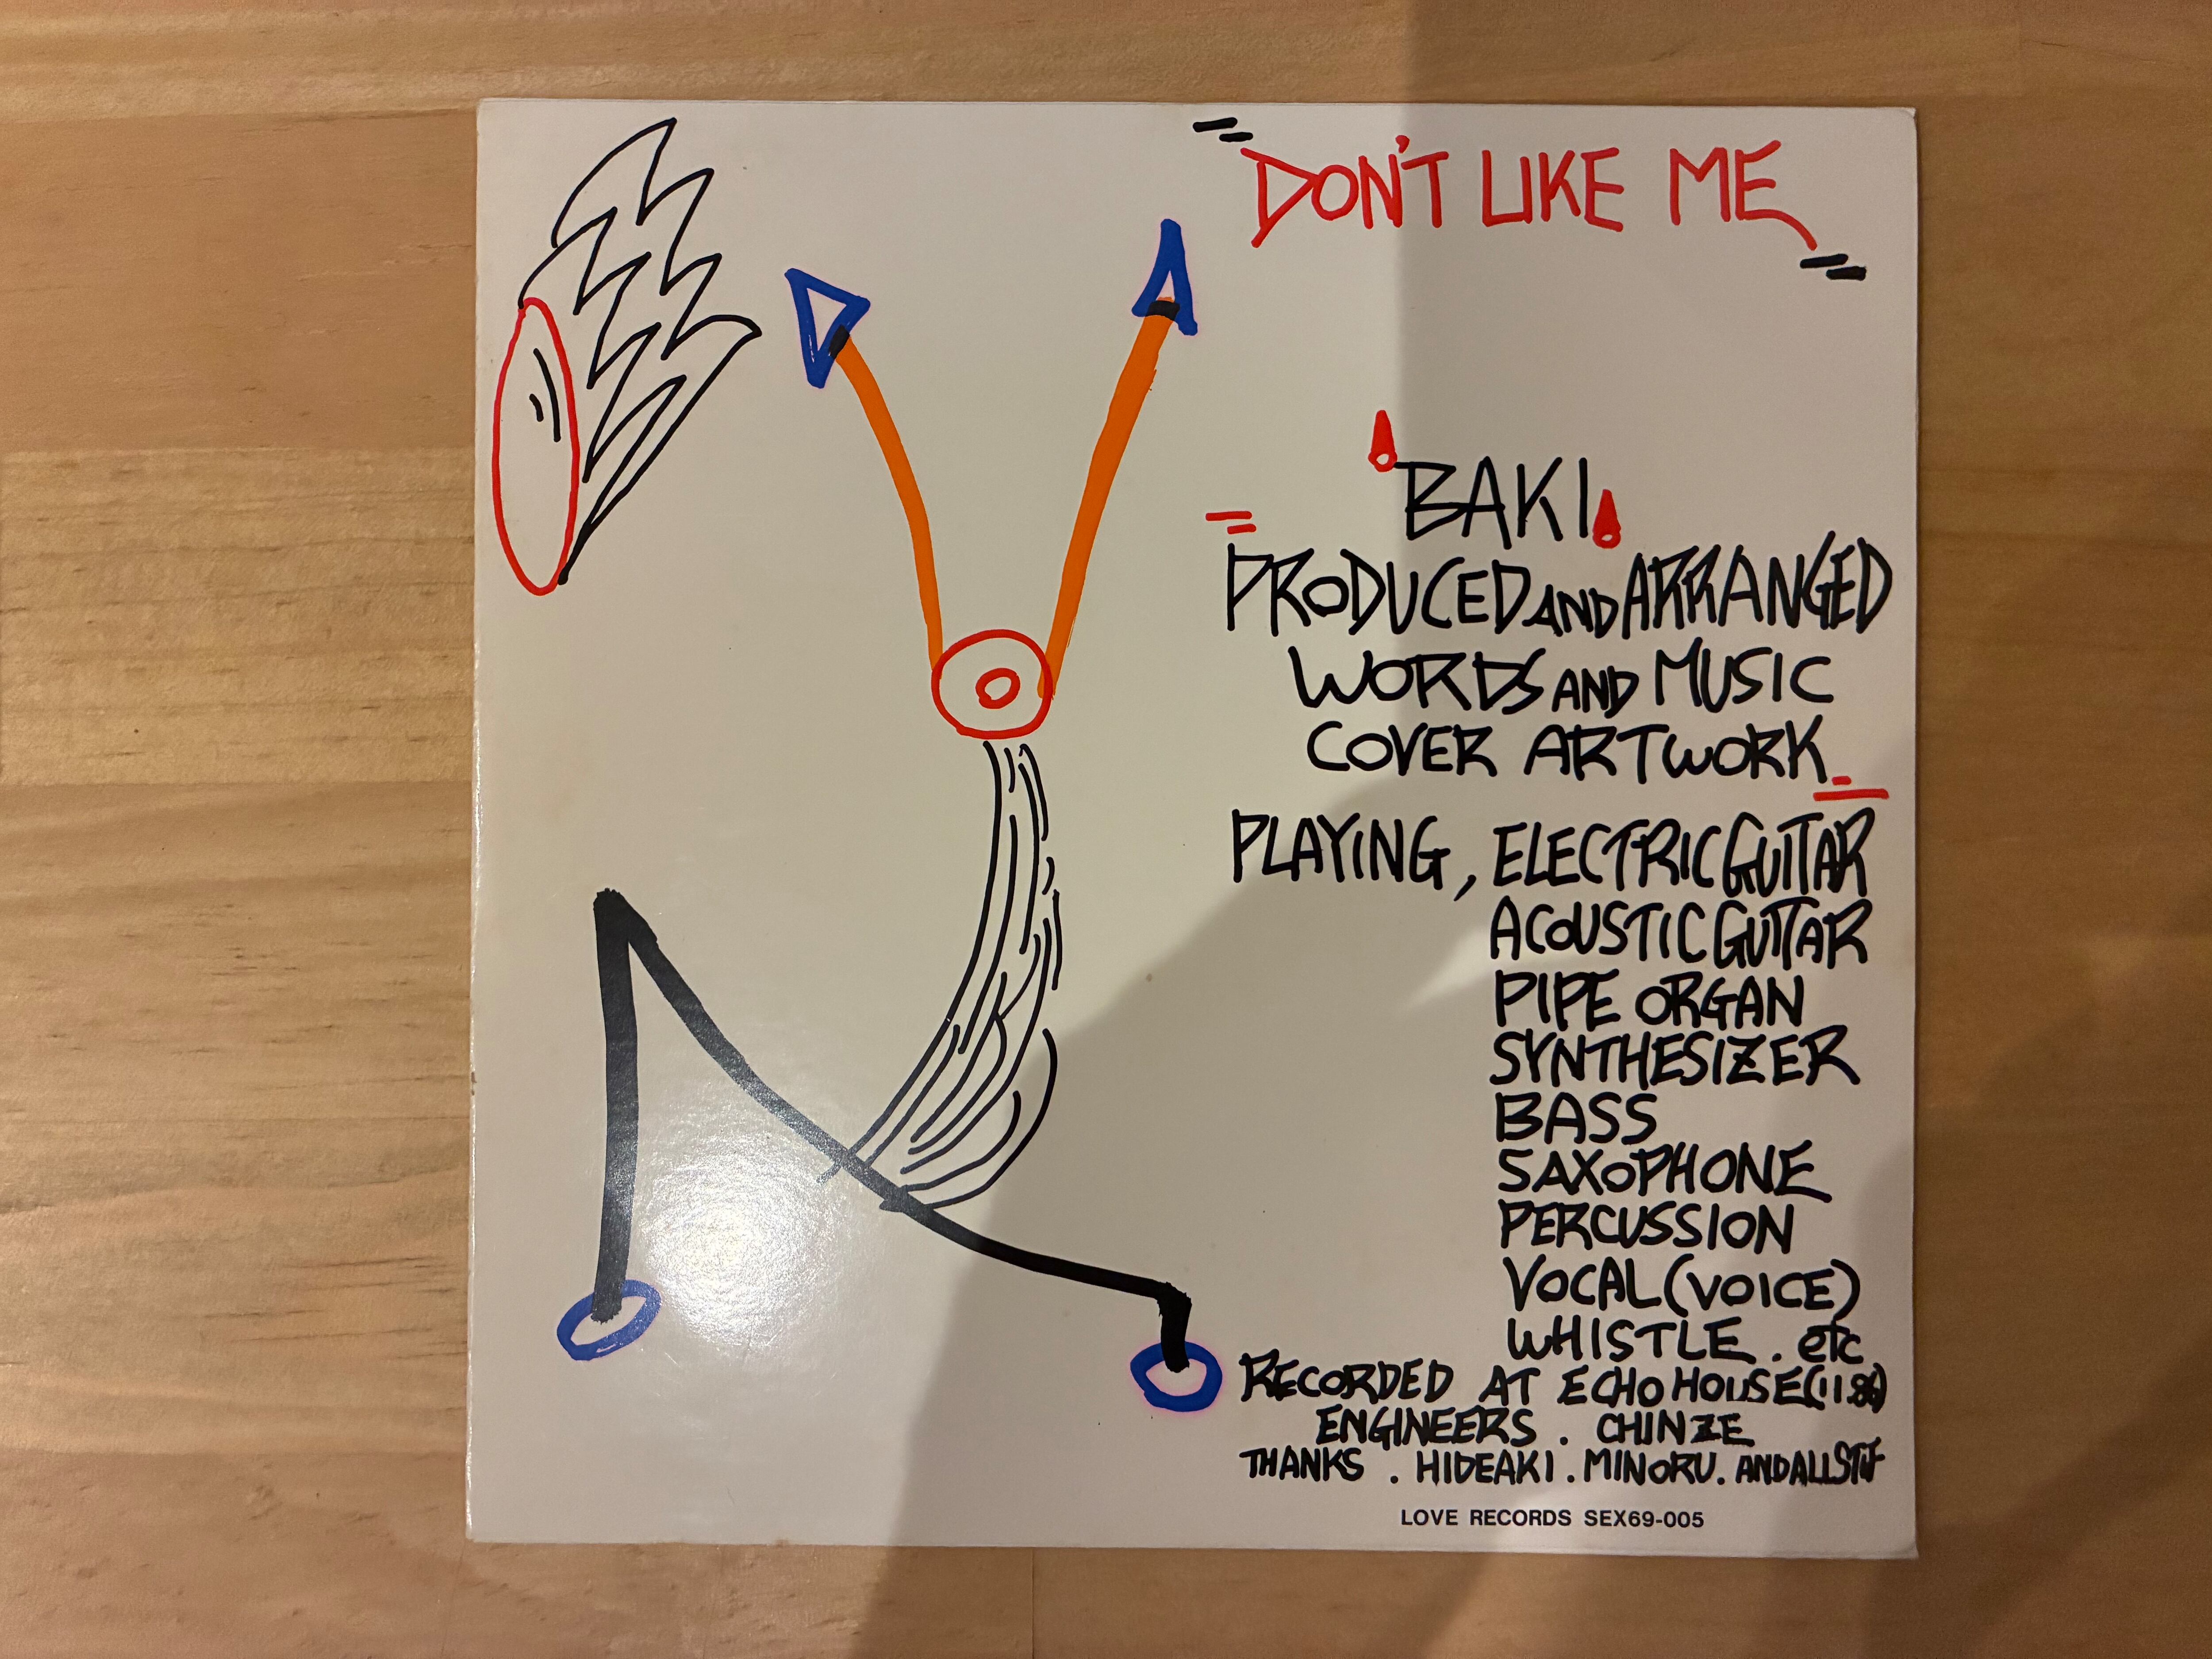 DON'T LIKE ME
BAKI
PRODUCED AND ARRANGED
WORDS AND MUSIC
COVER ARTWORK
PLAYING, ELECTRIC GUITAR
ACOUSTIC GUITAR
PIPE ORGAN
SYNTHESIZER
BASS
SAXOPHONE
PERCUSSION
VOCAL (VOICE)
WHISTLE. etc
RECORDED AT ECHO HOUSE (11.86)
ENGINEERS. CHINZE
THANKS. HIDEAKI. MINORU. AND ALL
LOVE RECORDS SEX69-005